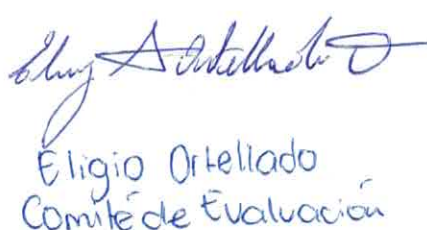 Eligio Ortellado
Comité de Evaluación